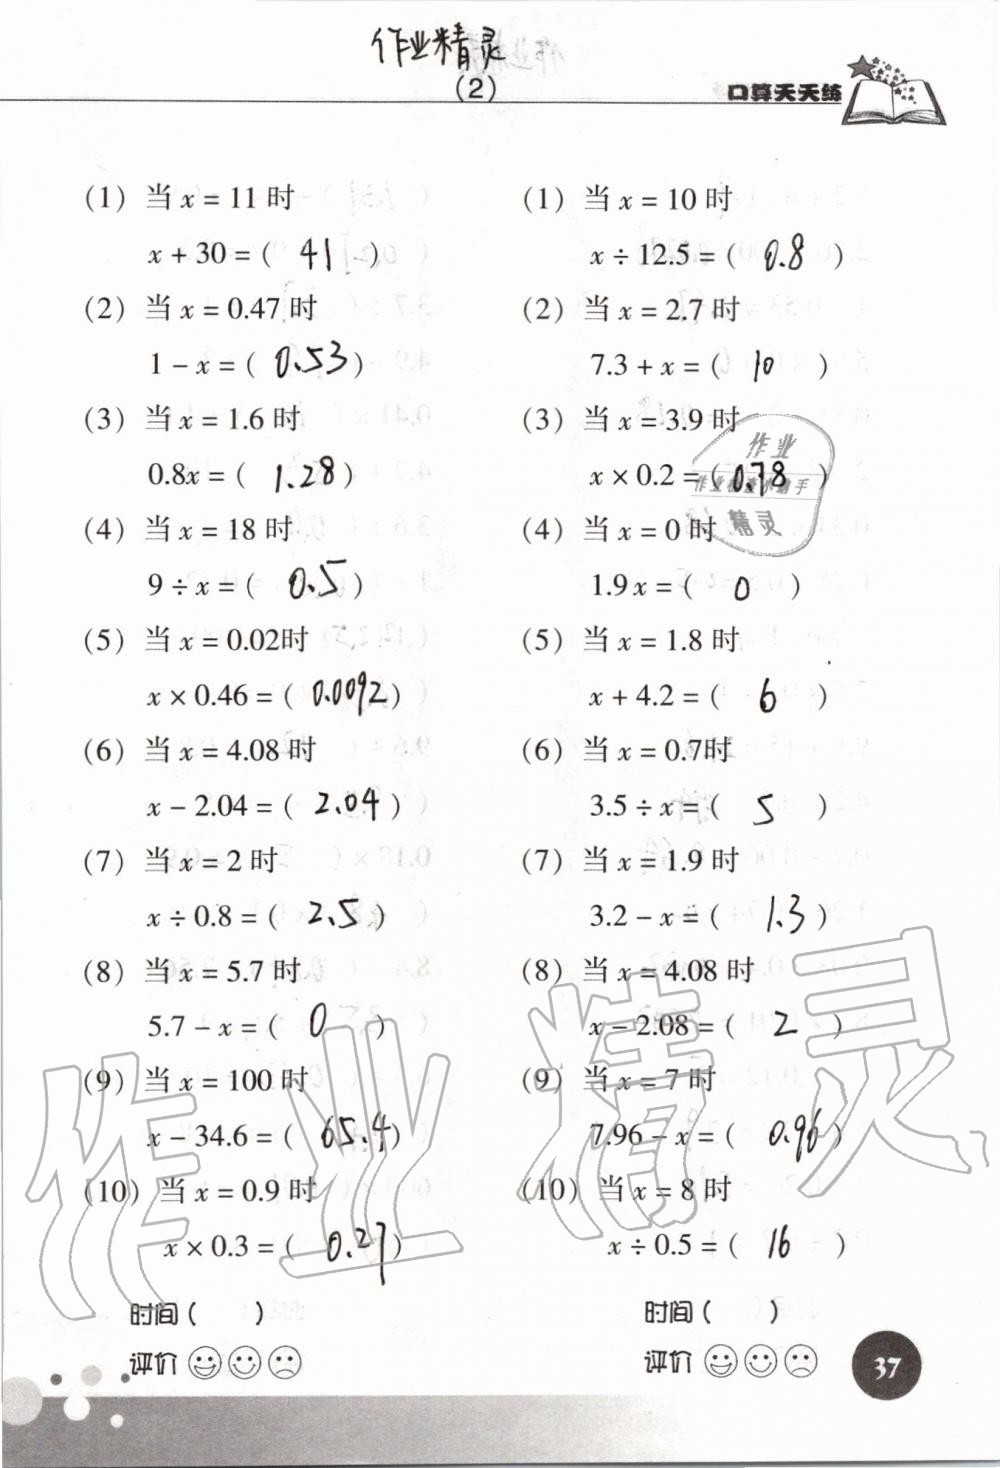 作业精灵
(2)
口算天天练
(1) 当 x = 11 时
x + 30 = ( 41 )
(2) 当 x = 0.47 时
1 − x = ( 0.53 )
(3) 当 x = 1.6 时
0.8x = ( 1.28 )
(4) 当 x = 18 时
9 ÷ x = ( 0.5 )
(5) 当 x = 0.02时
x × 0.46 = ( 0.0092 )
(6) 当 x = 4.08 时
x − 2.04 = ( 2.04 )
(7) 当 x = 2 时
x ÷ 0.8 = ( 2.5 )
(8) 当 x = 5.7 时
5.7 − x = ( 0 )
(9) 当 x = 100 时
x − 34.6 = ( 65.4 )
(10) 当 x = 0.9 时
x × 0.3 = ( 0.27 )
时间 ( )
评价
(1) 当 x = 10 时
x ÷ 12.5 = ( 0.8 )
(2) 当 x = 2.7 时
7.3 + x = ( 10 )
(3) 当 x = 3.9 时
x × 0.2 = ( 0.78 )
(4) 当 x = 0 时
1.9 x = ( 0 )
(5) 当 x = 1.8 时
x + 4.2 = ( 6 )
(6) 当 x = 0.7时
3.5 ÷ x = ( 5 )
(7) 当 x = 1.9 时
3.2 − x = ( 1.3 )
(8) 当 x = 4.08 时
x − 2.08 = ( 2 )
(9) 当 x = 7 时
7.96 − x = ( 0.96 )
(10) 当 x = 8 时
x ÷ 0.5 = ( 16 )
时间 ( )
评价
37
作业
精灵
作业精灵